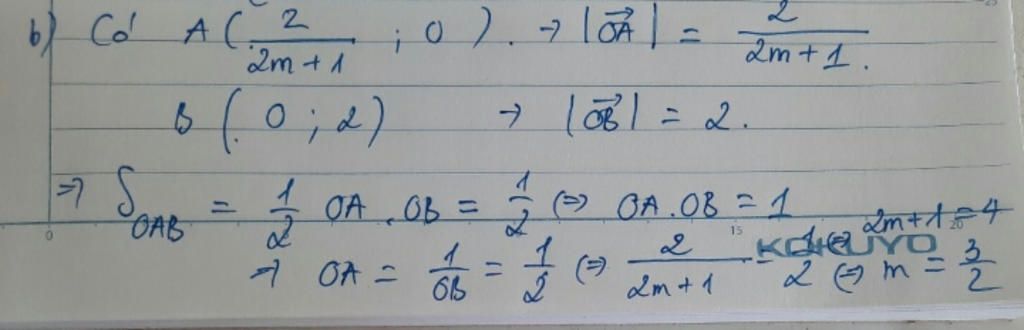 b) Có A(2/(2m+1) ; 0). → |OA| = 2/(2m+1).
B(0 ; 2) → |OB| = 2.
⇒ S_OAB = 1/2 OA . OB = 1/2 ⇔ OA.OB = 1
⇒ OA = 1/OB = 1/2 ⇔ 2/(2m+1) = 1/2 ⇔ 2m+1 = 4
⇔ m = 3/2
0 15 20
KOKUYO